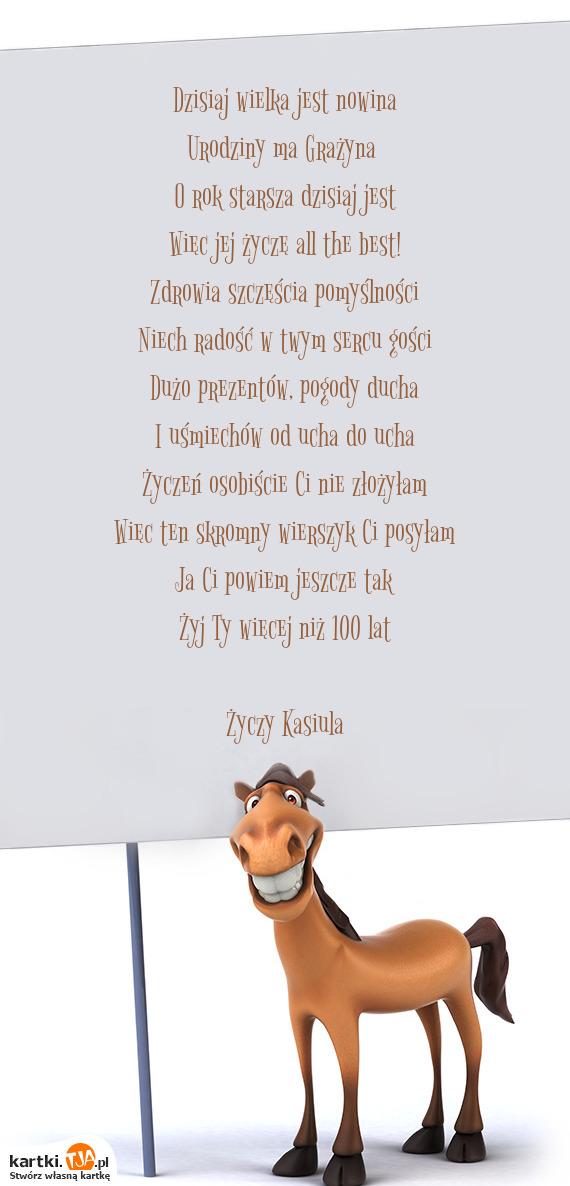 Dzisiaj wielka jest nowina
Urodziny ma Grażyna
O rok starsza dzisiaj jest
Więc jej życzę all the best!
Zdrowia szczęścia pomyślności
Niech radość w twym sercu gości
Dużo prezentów, pogody ducha
I uśmiechów od ucha do ucha
Życzeń osobiście Ci nie złożyłam
Więc ten skromny wierszyk Ci posyłam
Ja Ci powiem jeszcze tak
Żyj Ty więcej niż 100 lat
Życzy Kasiula
kartki.TJA.pl
Stwórz własną kartkę